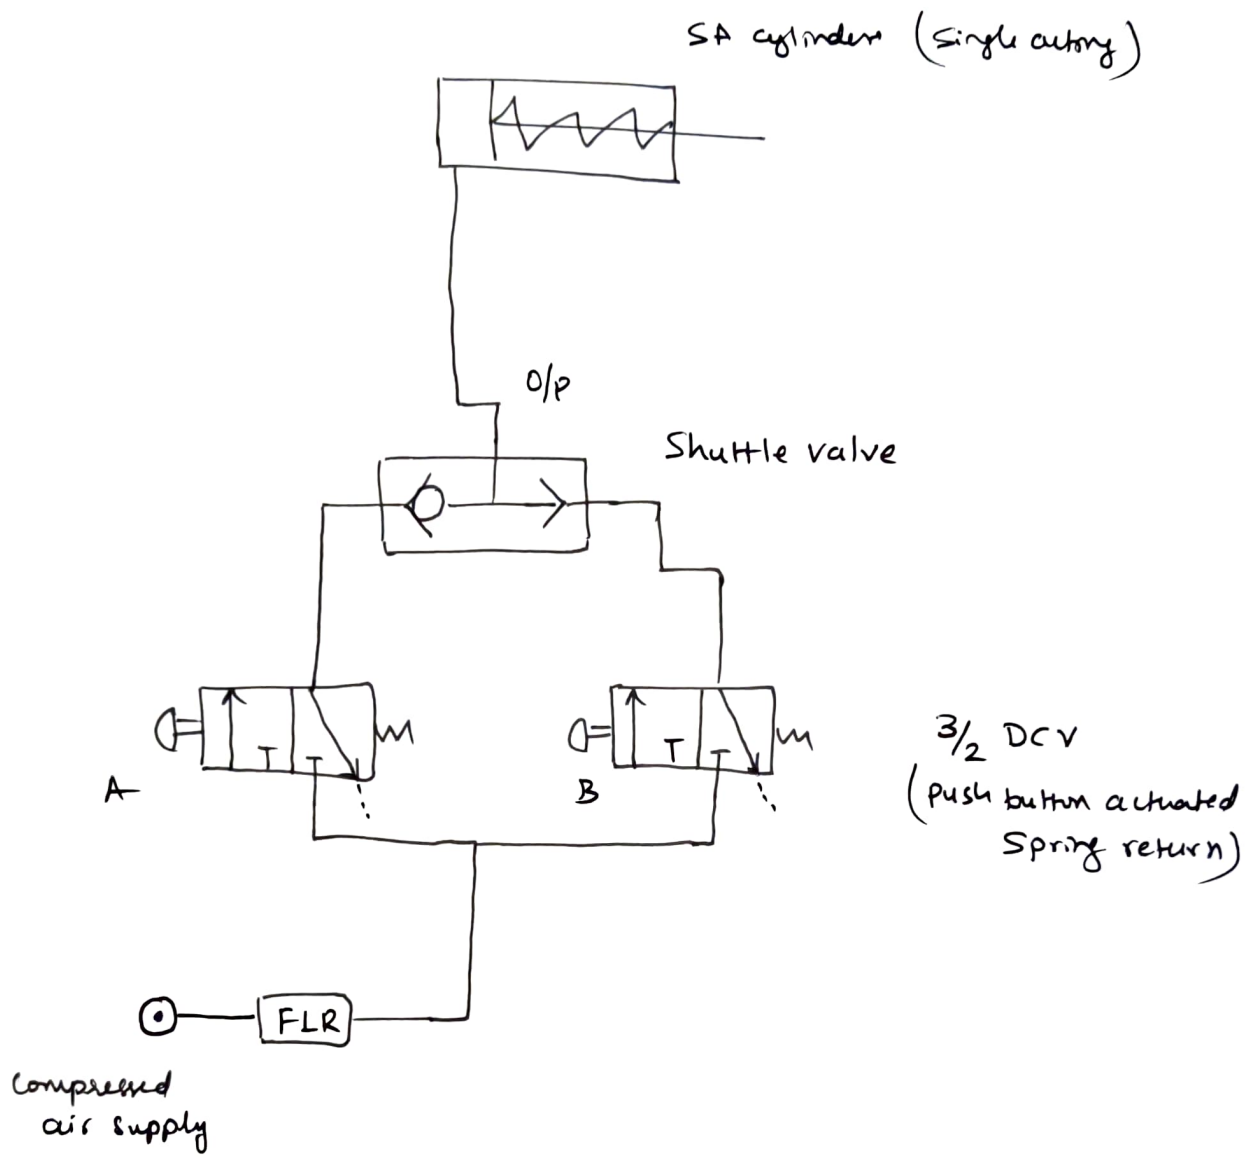 SA cylinder (single acting)
O/P
Shuttle valve
A
B
3/2 DCV
(push button actuated
Spring return)
FLR
Compressed
air supply